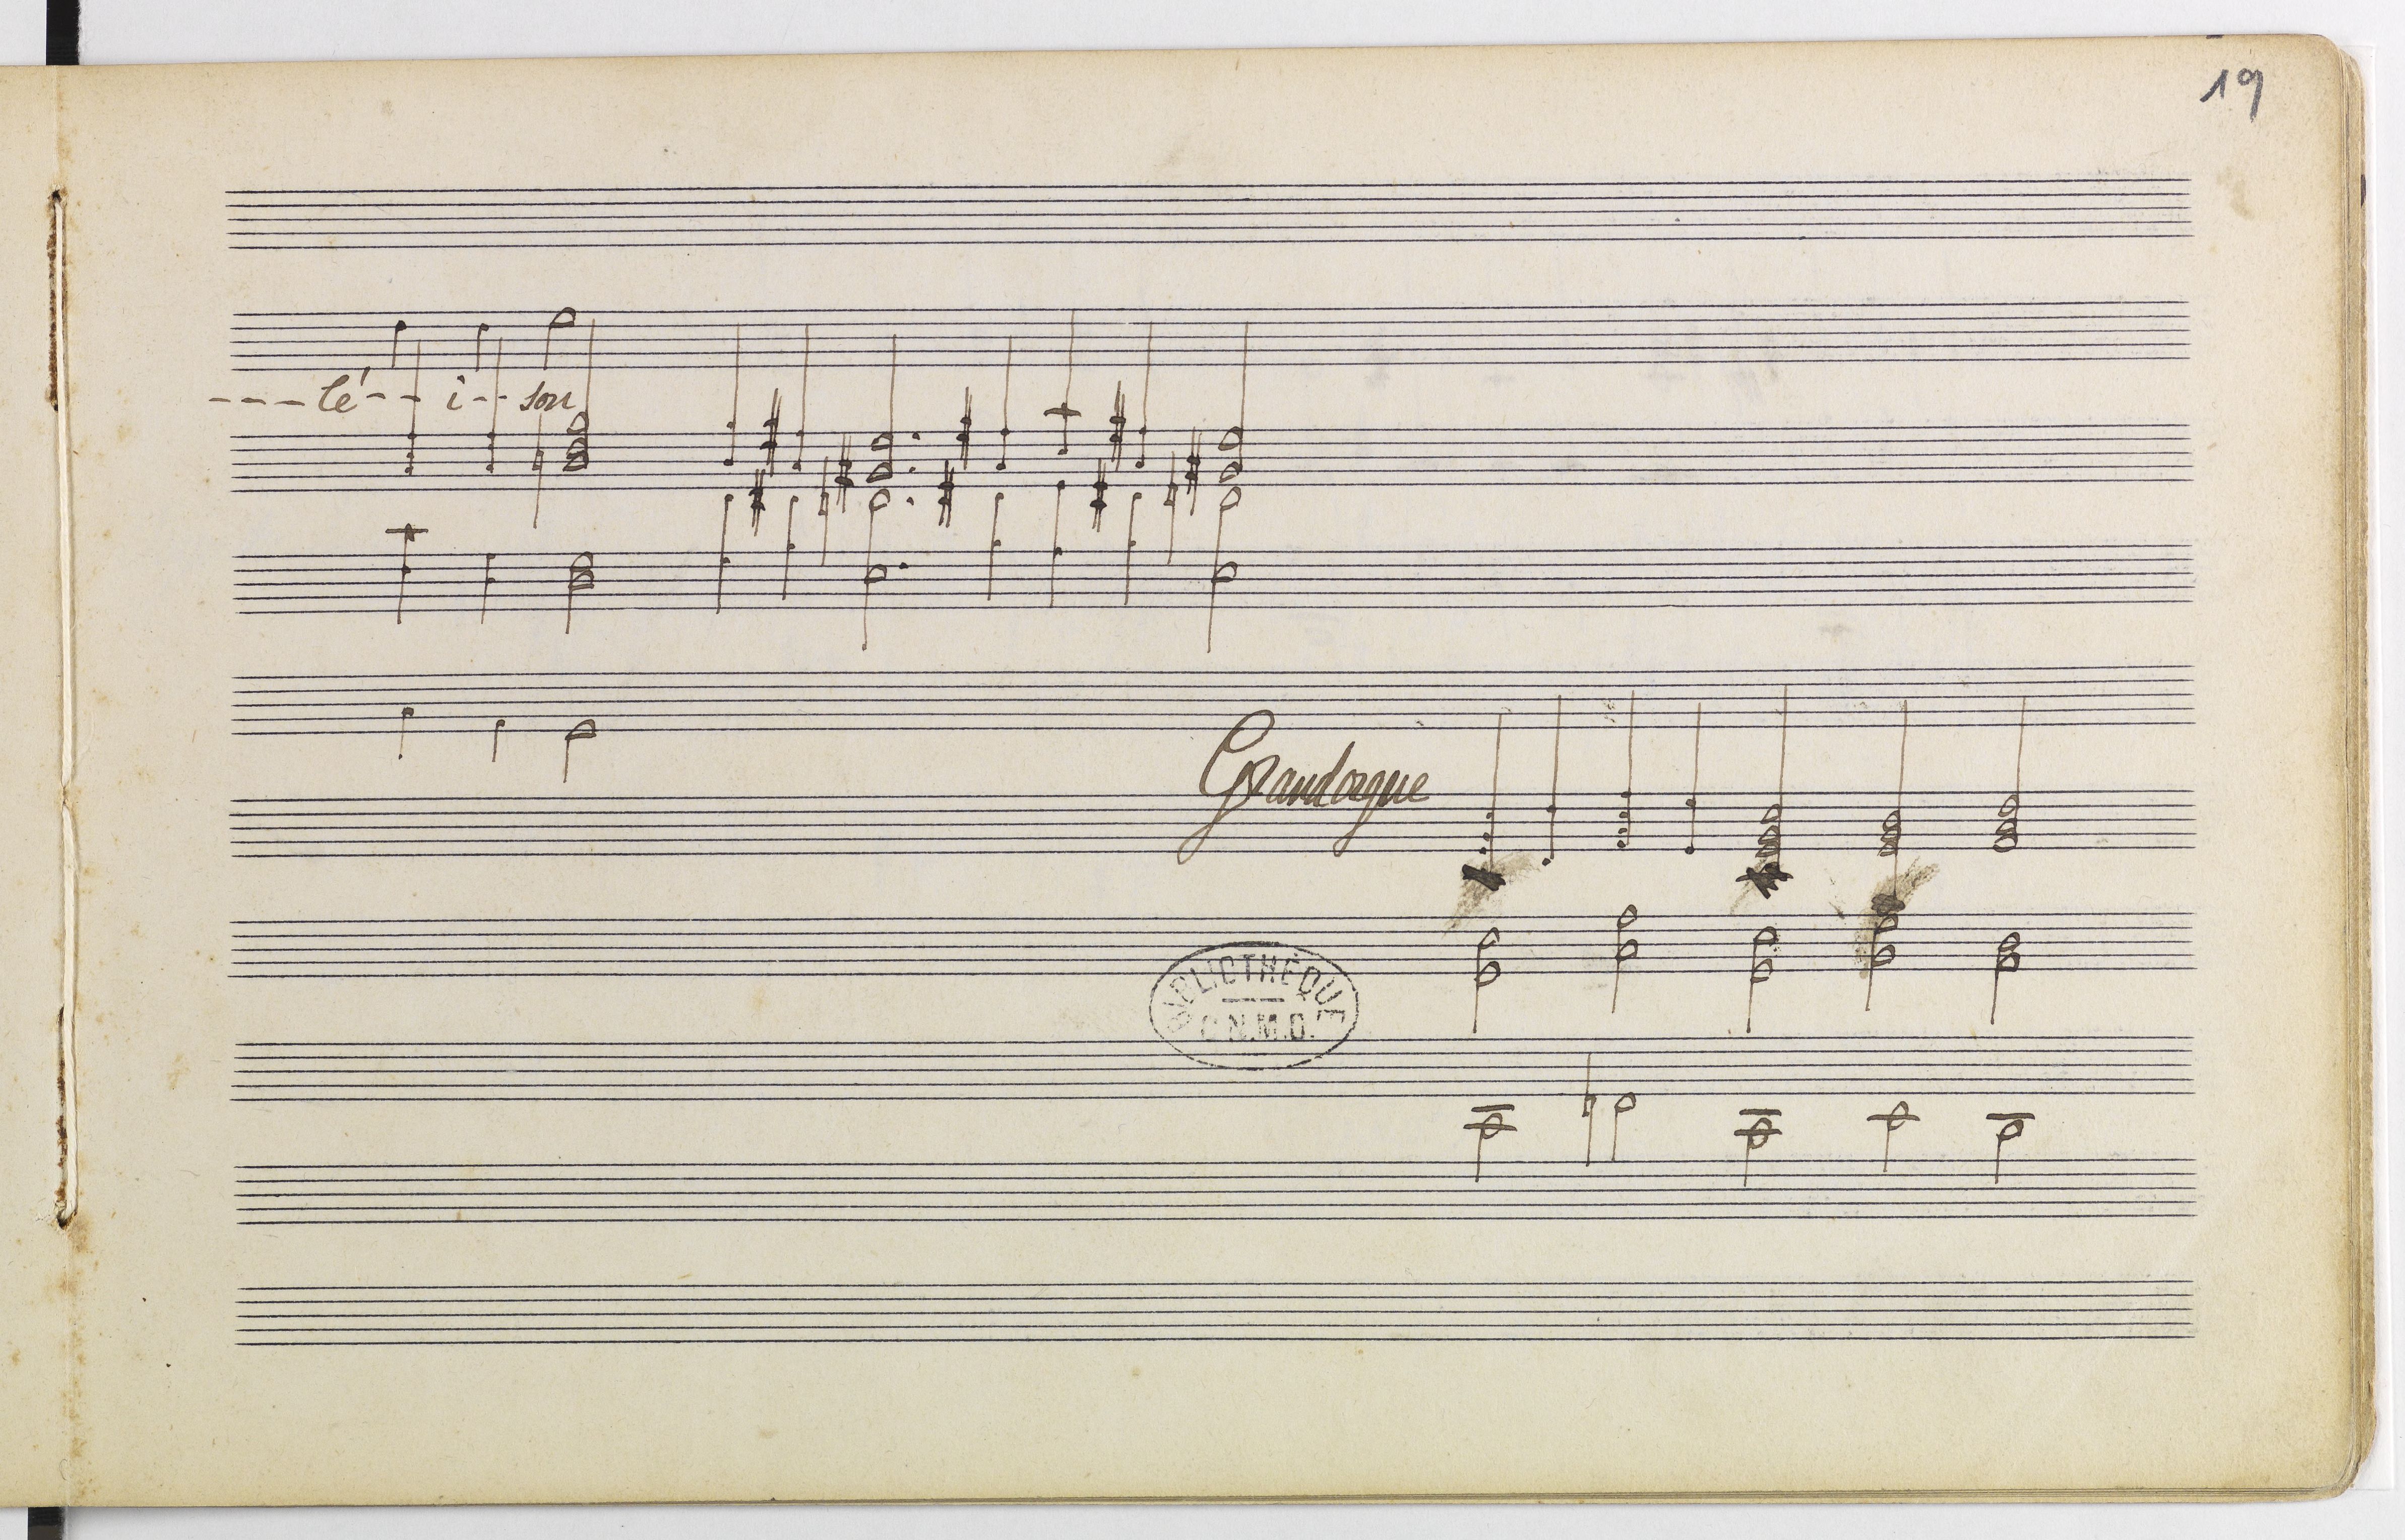 19
---lé--i--son
Grandorgue
BIBLIOTHÈQUE
C.N.M.D.